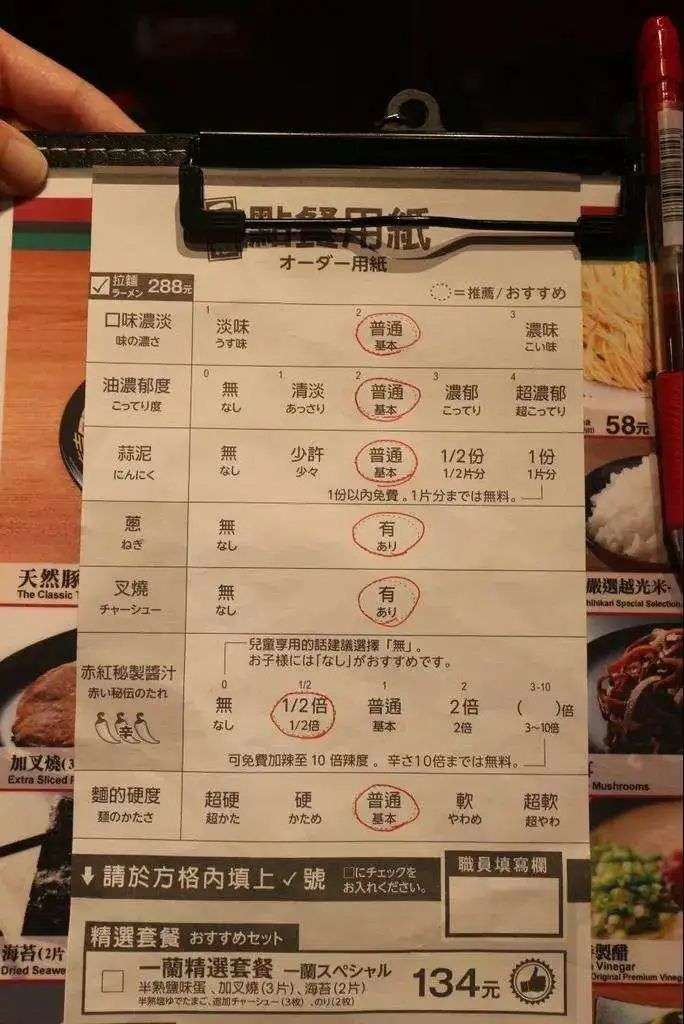 點餐用紙
オーダー用紙
拉麵 288元
ラーメン
=推薦/おすすめ
口味濃淡 1 淡味 2 普通 3 濃味
味の濃さ うす味 基本 こい味
油濃郁度 0 無 1 清淡 2 普通 3 濃郁 4 超濃郁
こってり度 なし あっさり 基本 こってり 超こってり
蒜泥 無 少許 普通 1/2份 1份
にんにく なし 少々 基本 1/2片分 1片分
1份以內免費。1片分までは無料。
蔥 無 有
ねぎ なし あり
叉燒 無 有
チャーシュー なし あり
兒童享用的話建議選擇「無」。
お子様には「なし」がおすすめです。
赤紅秘製醬汁 0 無 1/2 1/2倍 1 普通 2 2倍 3-10 ( )倍
赤い秘伝のたれ なし 1/2倍 基本 2倍 3~10倍
辛
可免費加辣至10倍辣度。辛さ10倍までは無料。
麵的硬度 超硬 硬 普通 軟 超軟
麺のかたさ 超かた かため 基本 やわめ 超やわ
請於方格內填上✓號
□にチェックを
お入れください。
職員填寫欄
精選套餐 おすすめセット
一蘭精選套餐 一蘭スペシャル 134元
半熟鹽味蛋、加叉燒(3片)、海苔(2片)
半熟塩ゆでたまご、追加チャーシュー(3枚)、のり(2枚)
天然豚
The Classic
加叉燒(3
Extra Sliced
海苔(2片
Dried Seawe
58元
嚴選越光米
hihikari Special Selection
Mushrooms
製醋
Vinegar
Original Premium Vinegar